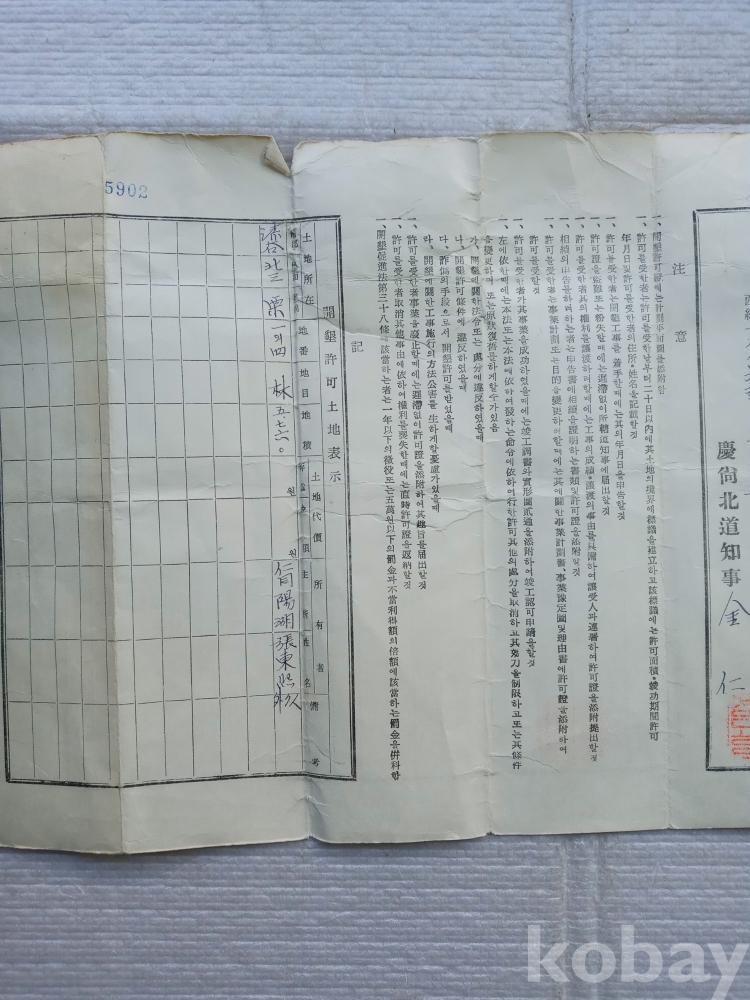 慶尙北道知事 金 仁
注 意
一、開墾許可證에는計劃平面圖를添附함
一、許可를受한者는許可를受한날부터二十日以內에其土地의境界에標識을建立하고該標識에는許可面積·竣功期間許可
年月日및許可를受한者의住所·姓名을記載할것
一、許可를受한者는開墾工事를着手할때에는其의年月日을申告할것
一、許可證을盜難또는紛失할때에는遲滯없이所轄道知事에屆出할것
一、許可를受한者其의權利를讓渡하려할때에는工事의成績·讓渡의事由를具附하여讓受人과連署하여許可證을添附提出할것
一、相續의申告를하려하는者는申告書에相續을證明하는書類및許可證을添附할것
一、許可를受한者는事業計劃또는目的을變更하려할때에는其에關한事業計劃書、事業豫定圖및理由書에許可證을添附하여
할것
一、許可를受한者가其事業을成功하였을때에는竣工調書와實形圖貳通을添附하여竣工認可申請을할것
一、左에依한때에는本法또는本法에依하여發하는命令에依하여行한許可其他의處分을取消하고其効力을制限하고또는其條件
을變更하며또는原狀復舊를하게할수가있음
가、開墾에關한法令또는處分에違反하였을때
나、開墾許可條件에違反하였을때
다、詐僞의手段으로서開墾許可를받었을때
라、開墾에關한工事施行의方法公害를生하게할憂慮가있을때
一、許可를受한者事業을廢止할때에는遲滯없이許可證을添附하여其趣旨를屆出할것
一、許可를受한者取消其他事由에依하여權利를喪失할때에는直時許可證을返納할것
一、開墾促進法第三十八條에該當하는者는一年以下의徵役또는五萬원以下의罰金과不當利得額의倍額에該當하는罰金을倂科함
記
開墾許可土地表示
土地所在 地番 地目 地積 土地代價 所有者 備考
住所 姓名
北三 栗 一의四 林 五七六。 원 원 仁同 陽湖 張東
5902
kobay